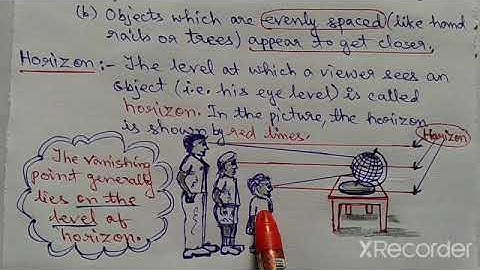 (b) Objects which are evenly spaced (like hand
rails or trees) appear to get closer.
Horizon:- The level at which a viewer sees an
object (i.e. his eye level) is called
horizon. In the picture, the horizon
is shown by red lines.
Horizon
The vanishing
point generally
lies on the
level of
horizon.
XRecorder